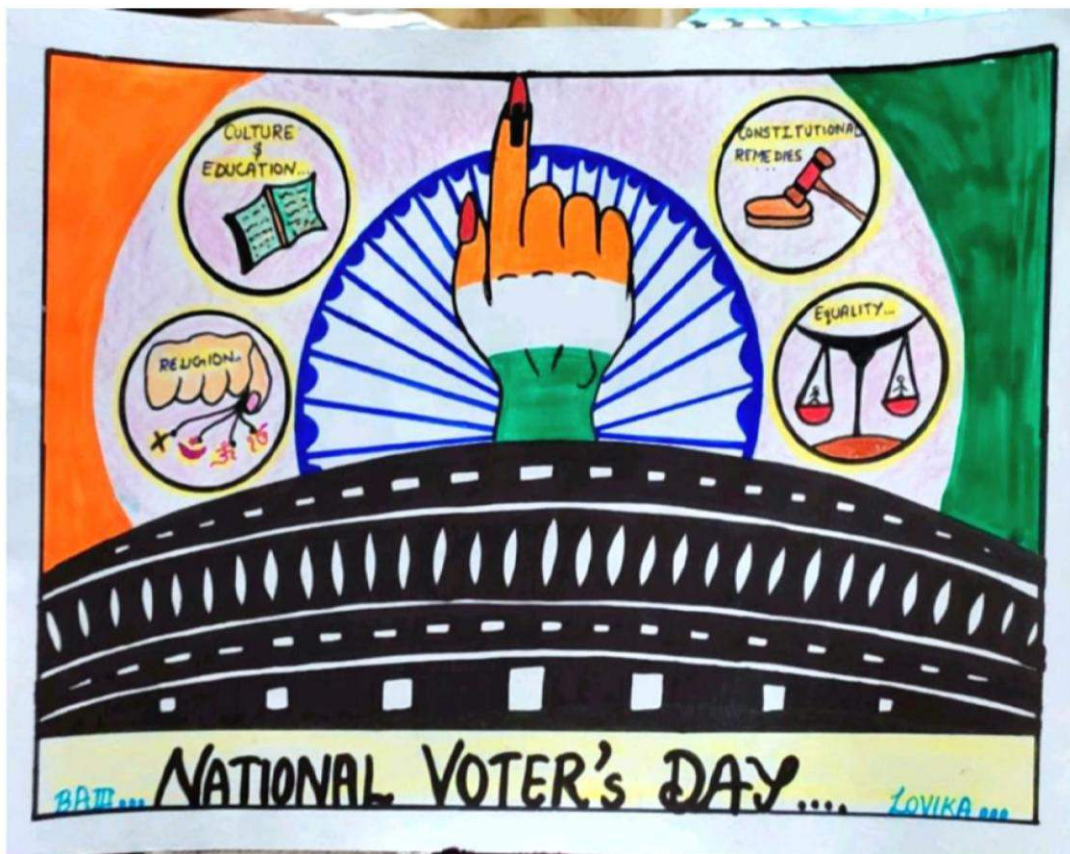 CULTURE
&
EDUCATION...
CONSTITUTIONAL
REMEDIES
...
RELIGION..
EQUALITY...
ॐ
NATIONAL VOTER'S DAY....
BA III...
LOVIKA...